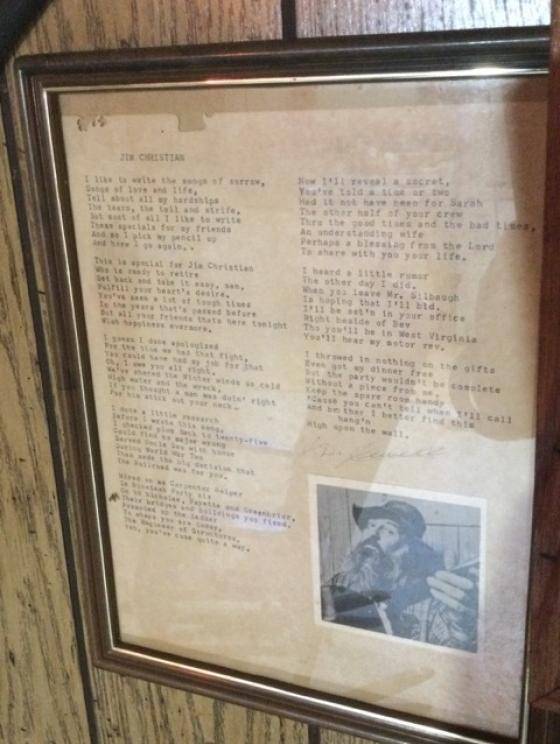 JIM CHRISTIAN
I like to write the songs of sorrow,
Songs of love and life,
Tell about all my hardships
The tears, the toil and strife,
But most of all I like to write
These specials for my friends
And so I pick my pencil up
And here I go again..
This is special for Jim Christian
Who is ready to retire
Set back and take it easy, man,
Fulfill your heart's desire.
You've seen a lot of tough times
In the years that's passed before
But all your friends thats here tonight
Wish happiness evermore.
I guess I done apologized
For the time we had that fight,
You could have had my job for that
Oh, I owe you all right.
We've shared the Winter winds so cold
High water and the wreck,
If you thought a man was doin' right
For him stick out your neck..
I done a little research
Before I wrote this song,
I checked plum back to twenty-five
Could find no major wrong
Served Uncle Sam with honor
During World War Two
Then made the big decision that
The Railroad was for you.
Hired on as Carpenter Helper
In Nineteen Forty six
On to Nicholas, Fayette and Greenbrier,
Their bridges and buildings you fixed.
Promoted up the ladder
To where you are today,
The Engineer of
Yeh, you've come quite a way.
Now I'll reveal a secret,
You've told a time or two
Had it not have been for Sarah
The other half of your crew
Thru the good times and the bad times,
An understanding wife
Perhaps a blessing from the Lord
To share with you your life.
I heard a little rumor
The other day I did.
When you leave Mr. Silbaugh
Is hoping that I'll bid.
I'll be set'n in your office
Right beside of Bev
Tho you'll be in West Virginia
You'll hear my motor rev.
I throwed in nothing on the gifts
Even got my dinner free
But the party wouldn't be complete
Without a piece from me.
Keep the spare room handy
'Cause you can't tell when I'll call
And brother I better find this
hang'n
High upon the wall.